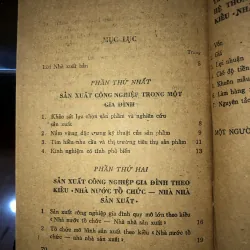 MỤC LỤC
Trang
Lời Nhà xuất bản 3
PHẦN THỨ NHẤT
SẢN XUẤT CÔNG NGHIỆP TRONG MỘT
GIA ĐÌNH
1. Khảo sát lựa chọn sản phẩm và nghiên cứu
sản xuất 5
2. Nắm vững đặc trưng kỹ thuật của sản phẩm 8
3. Tìm hiểu nhu cầu và thị trường tiêu thụ sản phẩm
4. Kinh nghiệm có tính phổ biến 13
PHẦN THỨ HAI
SẢN XUẤT CÔNG NGHIỆP GIA ĐÌNH THEO
KIỂU «NHÀ NƯỚC TỔ CHỨC — NHÀ NHÀ
SẢN XUẤT»
1. Sản xuất công nghiệp gia đình quy mô lớn theo kiểu
«Nhà nước tổ chức — nhà nhà sản xuất»
2. Tổ chức mô hình sản xuất theo kiểu «Nhà nước tổ
chức — nhà nhà sản xuất»
HỆ THỐ
KIỂU «NH
Lợi nhuận
Chế độ tiền
Khâu
Làm hàng
MỘT NGƯỜ